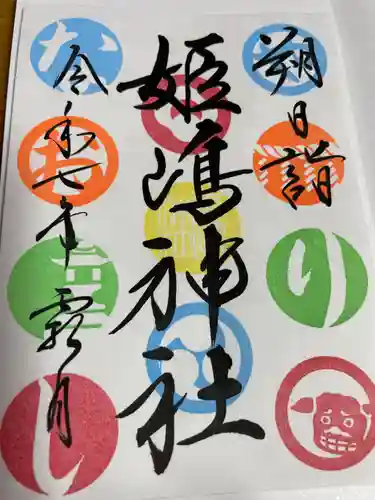 朔日詣
姫嶋神社
令和七年霜月